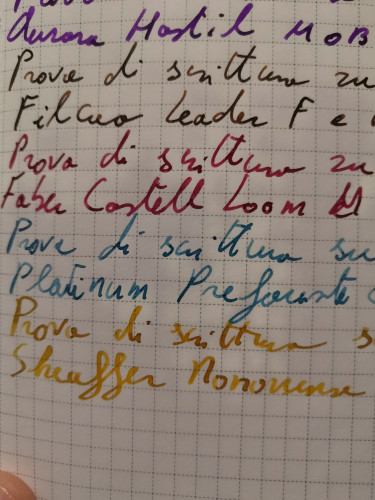 Aurora Hastil M OB
Prova di scrittura su
Filcao Leader F e
Prova di scrittura su
Faber Castell Loom M
Prova di scrittura su
Platinum Prefounte
Prova di scrittura s
Sheaffer Nononsense